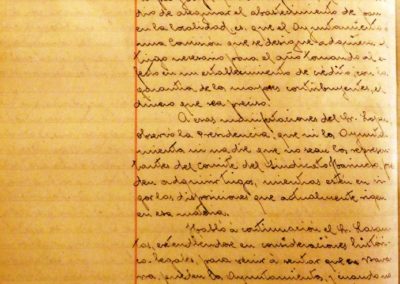 dio de asegurar el abastecimiento de pan
en la localidad, es, que el Ayuntamiento o
una Comision que se designe adquiera el
trigo necesario para el año tomando al e-
fecto en un establecimiento de crédito, con la
garantia de los mayores contribuyentes, el
dinero que sea preciso.
A esas manifestaciones del Sr.
observó la Presidencia, que ni los Ayunta-
mientos ni nadie que no sean los represen-
tantes del Comité del Sindicato, pue-
den adquirir trigo, mientras estén en vi-
gor las disposiciones que actualmente rigen
en esa materia.
Habló a continuación el Sr.
extendiendose en consideraciones
legales, para venir á sentar que en Nava-
rra, pueden los Ayuntamientos, y cuando no